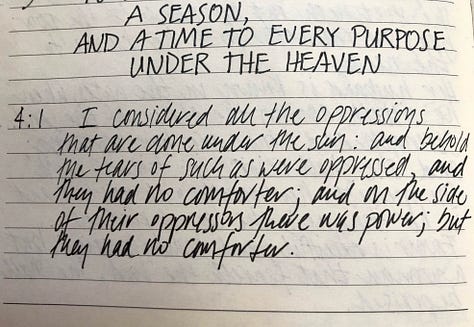 A SEASON,
AND A TIME TO EVERY PURPOSE
UNDER THE HEAVEN
4:1 I considered all the oppressions
that are done under the sun: and behold
the tears of such as were oppressed, and
they had no comforter; and on the side
of their oppressors there was power; but
they had no comforter.